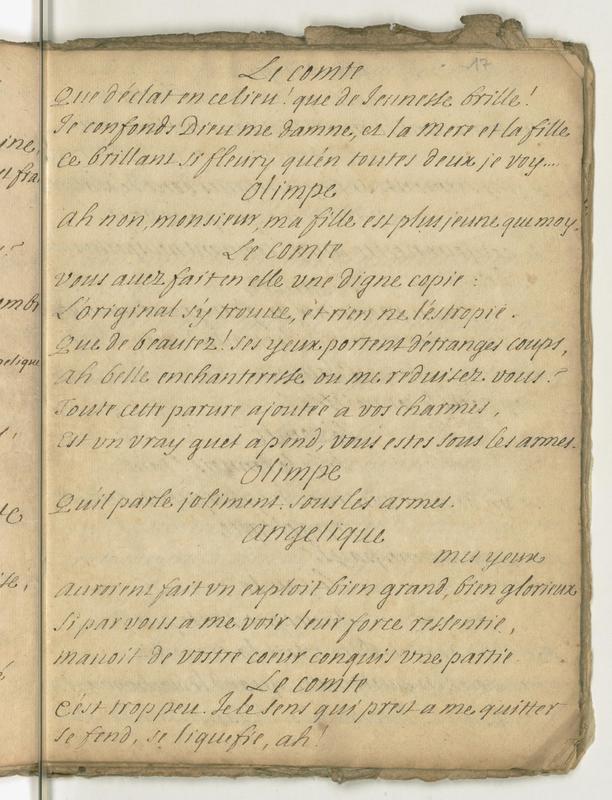 17
Le comte
Que déclat en ce lieu! que de Jeunesse brille!
Je confonds Dieu me damne, et la mere et la fille
ce brillant si fleury qu'en toutes deux je voy....
Olimpe
ah non, monsieur, ma fille est plus jeune que moy.
Le comte
vous auez fait en elle vne digne copie :
L'original s'y trouue, et rien ne l'estropie.
Que de beautez! ses yeux portent d'étranges coups,
ah belle enchanteresse ou me reduisez vous?
Toute cette parure ajoutée a vos charmes,
est vn vray guet a pend, vous estes sous les armes.
Olimpe
Qu'il parle joliment. sous les armes.
angelique
mes yeux
auroient fait vn exploit bien grand, bien glorieux
si par vous a me voir leur force ressentie,
m'auoit de vostre coeur conquis vne partie
Le comte
c'est trop peu. Je le sens qui prest a me quitter
se fend, se liquefie, ah!
ine,
et fra
?
pelique